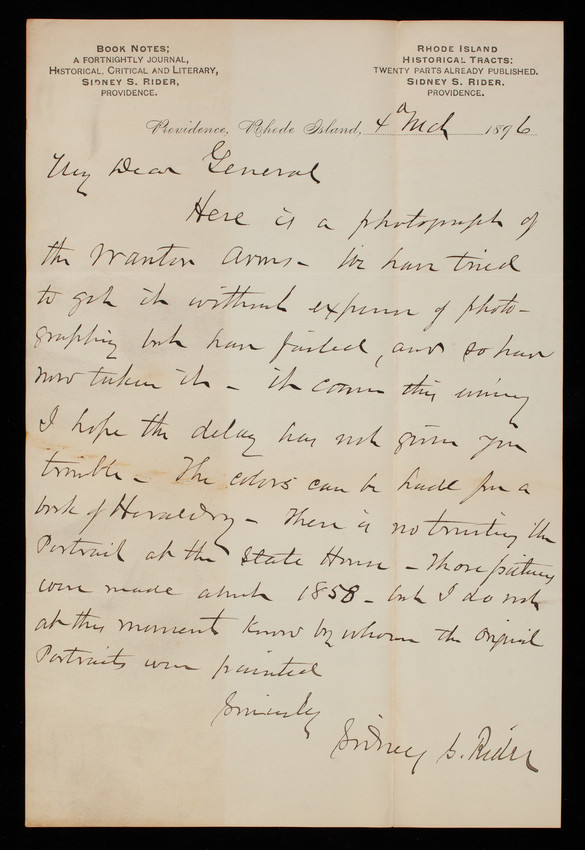 BOOK NOTES;
A FORTNIGHTLY JOURNAL,
HISTORICAL, CRITICAL AND LITERARY,
SIDNEY S. RIDER,
PROVIDENCE.
RHODE ISLAND
HISTORICAL TRACTS:
TWENTY PARTS ALREADY PUBLISHED.
SIDNEY S. RIDER.
PROVIDENCE.
Providence, Rhode Island, 4 Mch 1896
My Dear General
Here is a photograph of
the Wanton Arms - We have tried
to get it without expense of photo-
graphing but have failed, and so have
now taken it - it comes this evening
I hope the delay has not given you
trouble - The colors can be had from a
book of Heraldry - There is no trusting the
Portrait at the State House - Those pictures
were made about 1858 - but I do not
at this moment know by whom the original
Portraits were painted
Sincerely
Sidney S. Rider